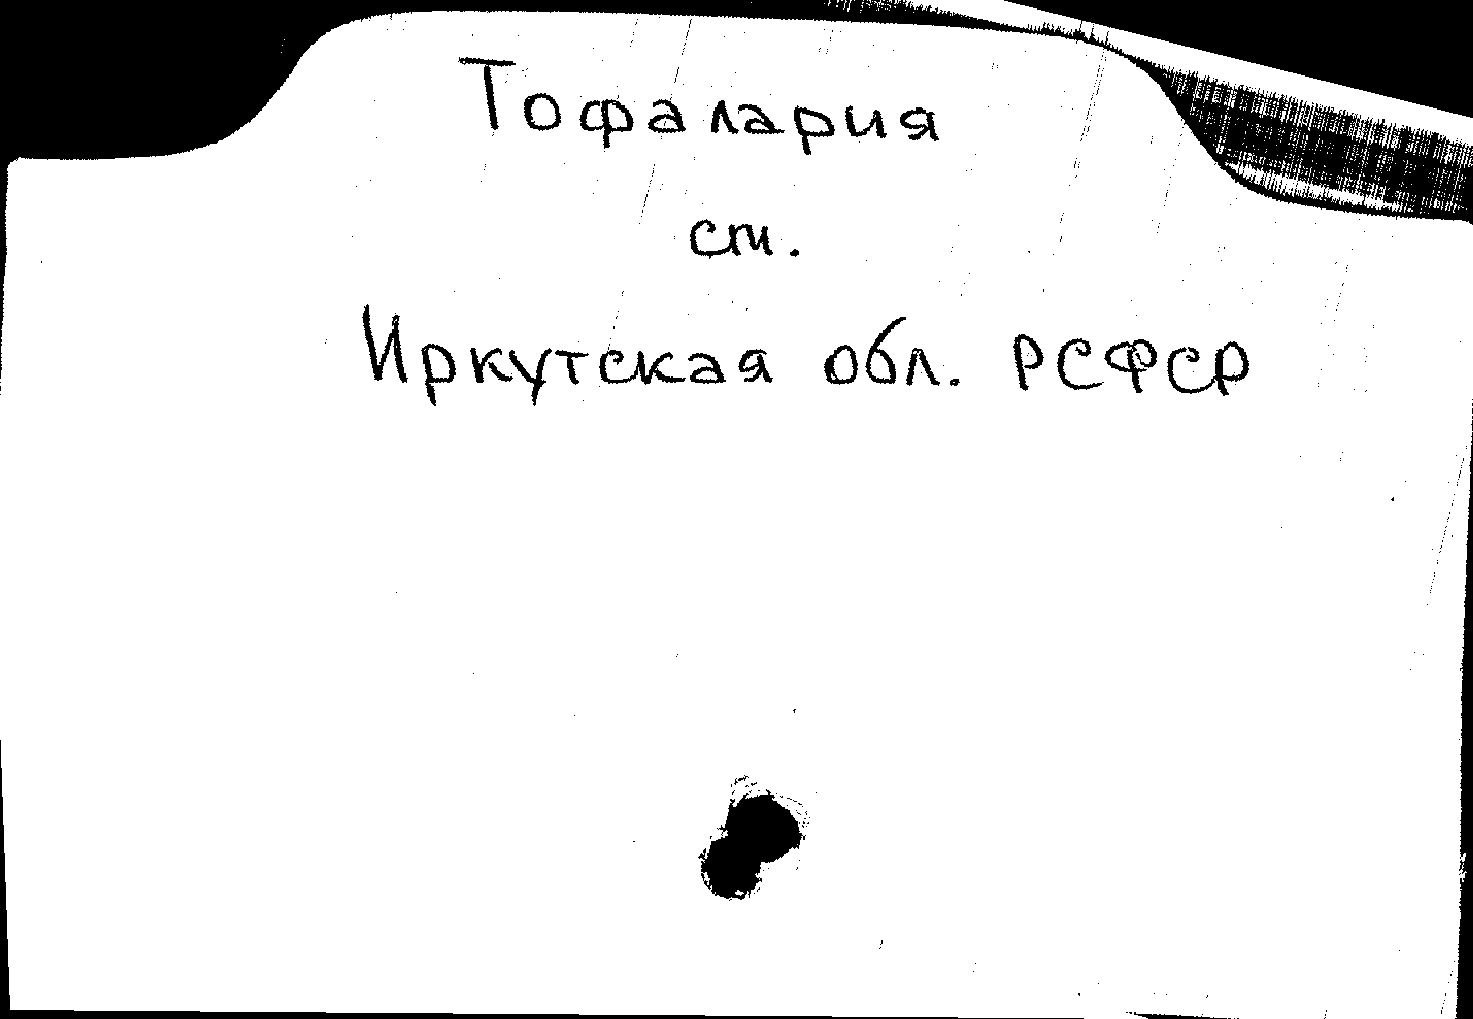 Тофалария
см.
Иркутская обл. РСФСР